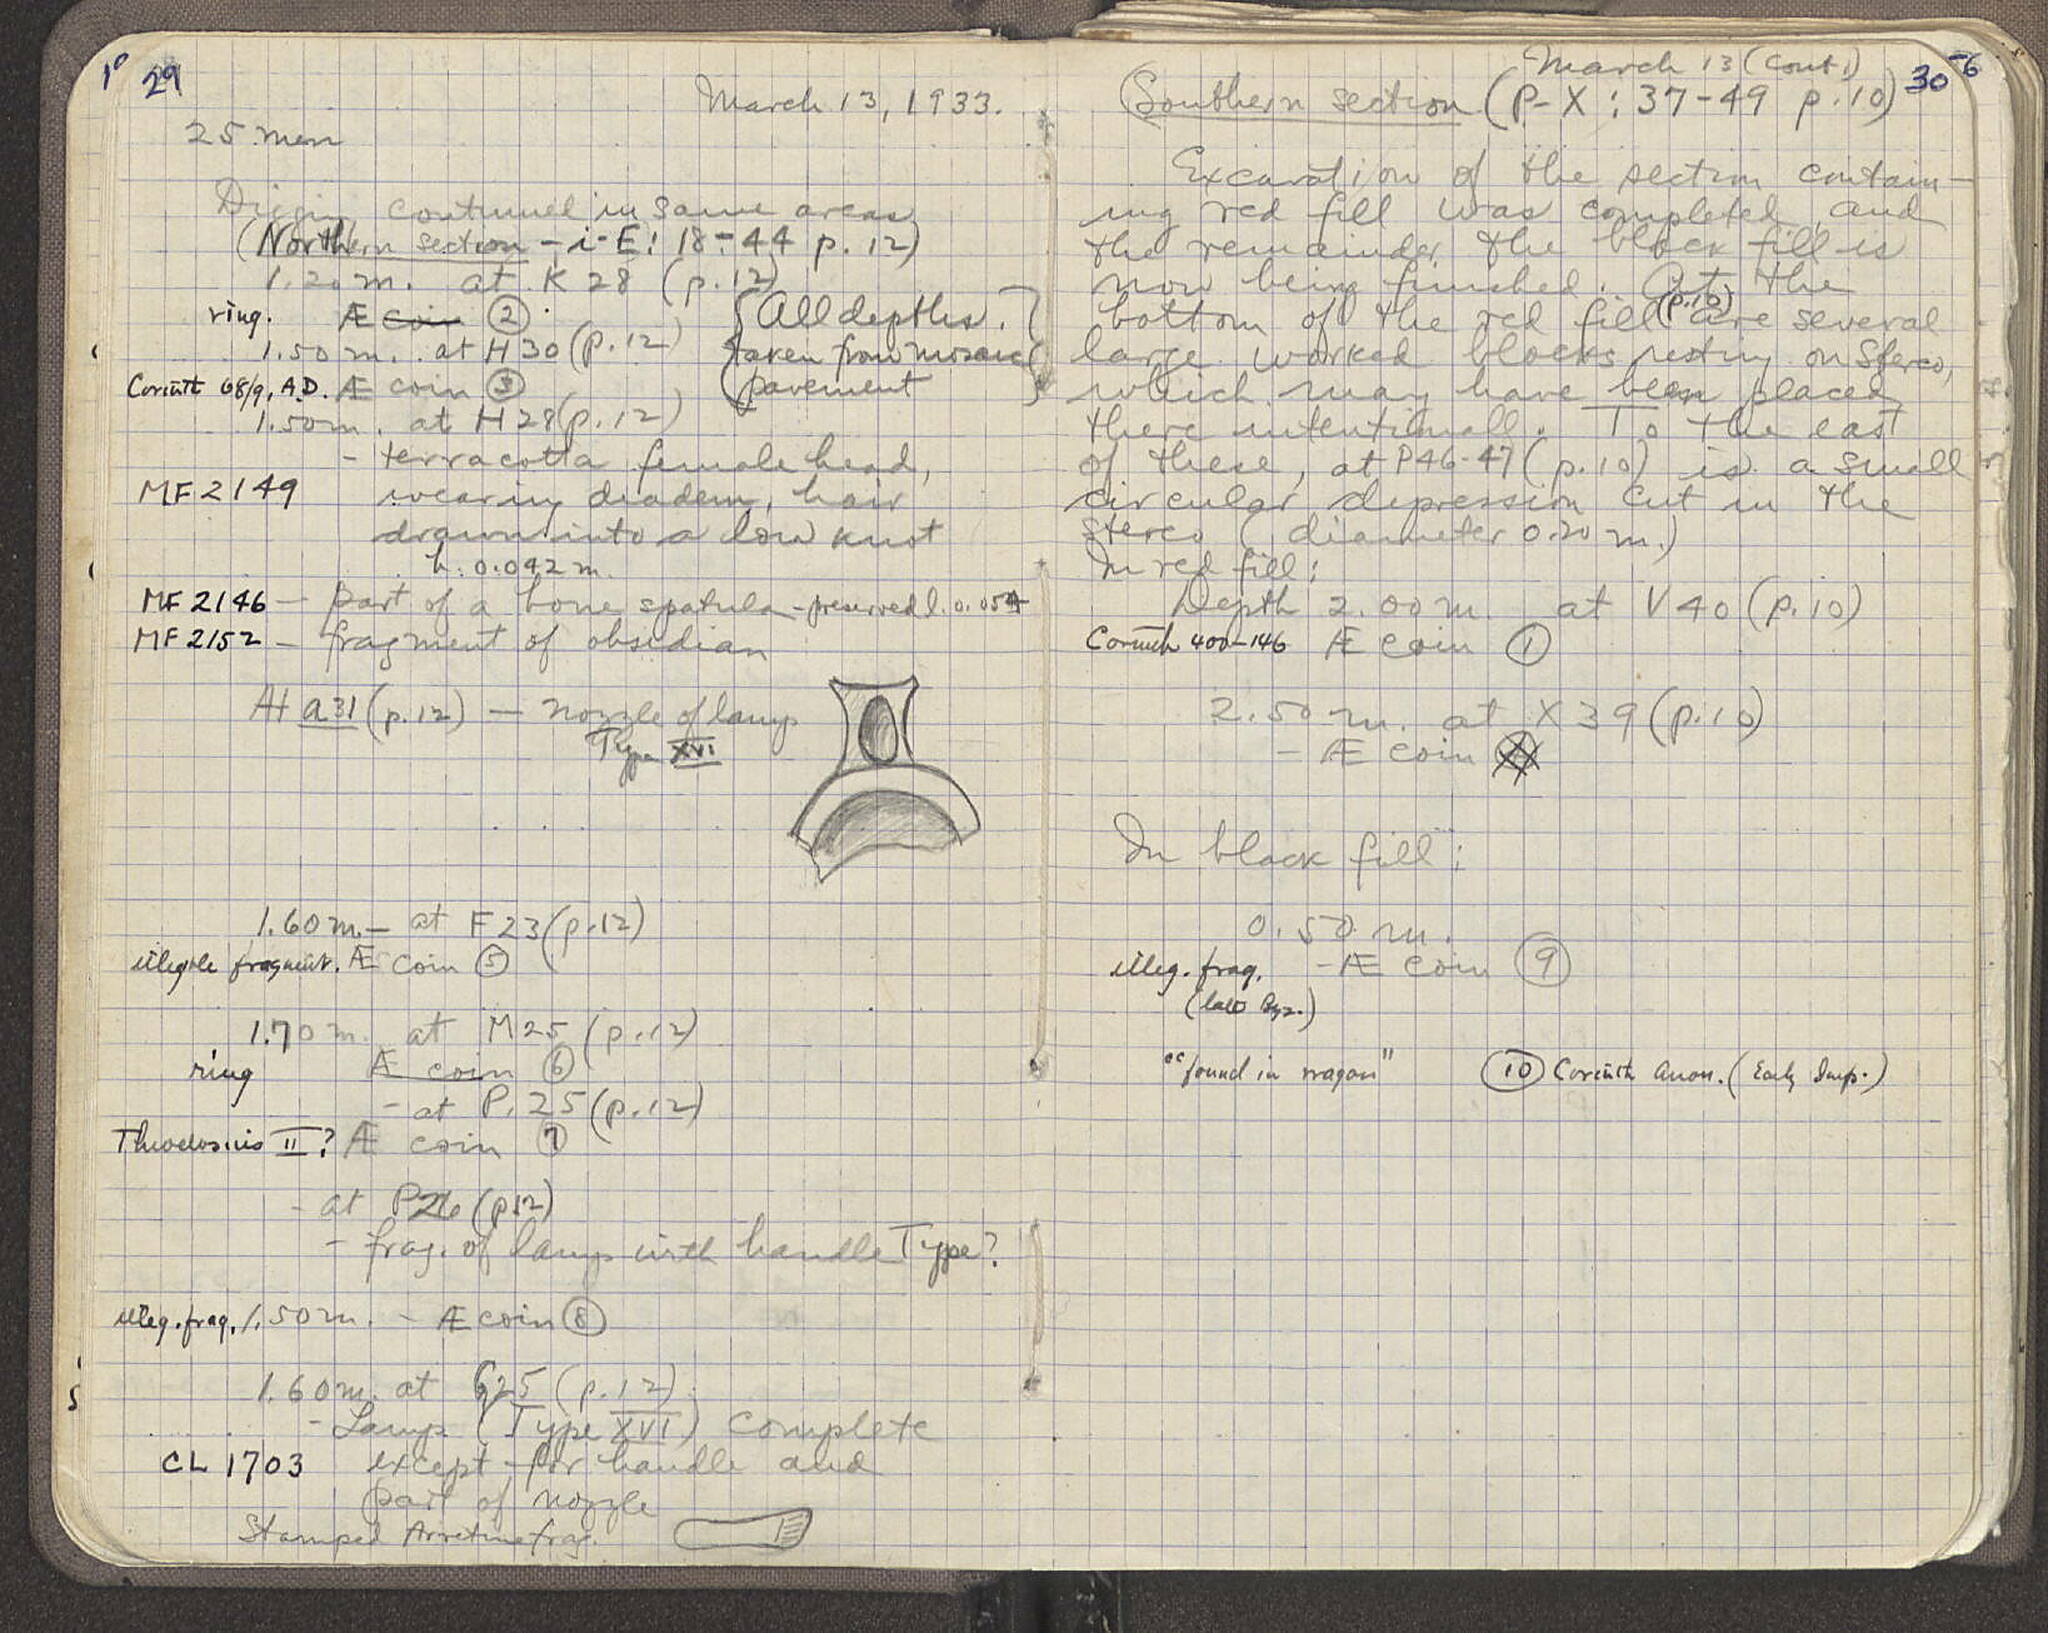 10 29
March 13, 1933.
25 men
Digging continued in same areas
(Northern section - i-E: 18-44 p. 12)
1.20 m. at K 28 (p. 12)
ring. Æ coin ②
{All depths taken from mosaic pavement}
1.50 m. at H30 (p. 12)
Corinth 68/9, A.D. Æ coin ③
1.50 m. at H28 (p. 12)
- terracotta female head,
MF 2149 wearing diadem, hair
drawn into a low knot
h. 0.042 m.
MF 2146 - part of a bone spatula - preserved l. 0.054
MF 2152 - fragment of obsidian
At a31 (p. 12) - nozzle of lamp
Type XVI
1.60 m. - at F23 (p. 12)
illegible fragment. Æ coin ⑤
1.70 m. at M25 (p. 12)
ring Æ coin ⑥
- at P.25 (p. 12)
Theodosius II? Æ coin ⑦
- at P26 (p 12)
- frag. of lamp with handle Type?
illeg. frag. 1.50 m. - Æ coin ⑧
1.60 m. at G25 (p. 12)
- Lamp (Type XVI) complete
CL 1703 except for handle and
part of nozzle
Stamped Arretine frag.
March 13 (cont.) 30
(Southern section (P-X: 37-49 p. 10)
Excavation of the section contain-
ing red fill was completed, and
the remainder, the black fill is
now being finished. At the
bottom of the red fill (p. 10) are several
large worked blocks resting on stereo,
which may have been placed
there intentionall. To the east
of these, at P46-47 (p. 10) is a small
circular depression cut in the
stereo (diameter 0.20 m.)
In red fill:
Depth 2.00 m. at V40 (p. 10)
Corinth 400-146 Æ coin ①
2.50 m. at X39 (p. 10)
- Æ coin
In black fill:
0.50 m.
illeg. frag. - Æ coin ⑨
(late Byz.)
"found in wagon" ⑩ Corinth Anon. (Early Imp.)